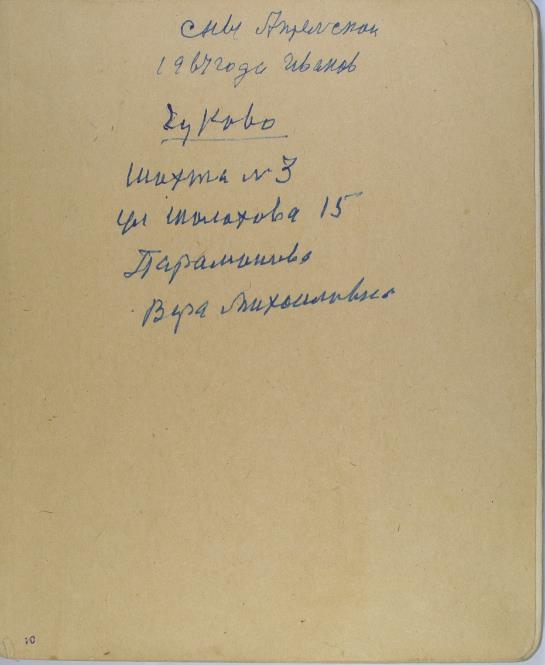 сны Апрелской
1964 года Иванов
Гуково
Шахта № 3
ул Шолохова 15
Парамонова
Вера Михоиловна